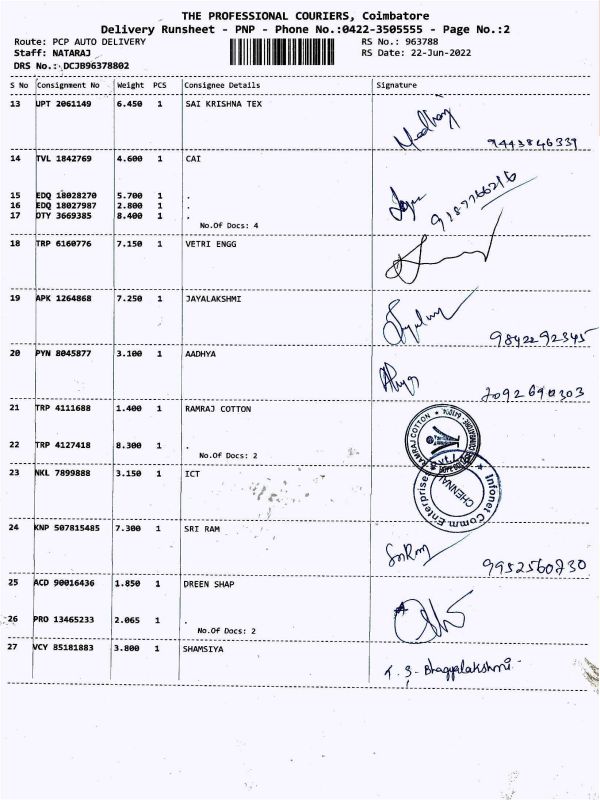 THE PROFESSIONAL COURIERS, Coimbatore
Delivery Runsheet - PNP - Phone No.:0422-3505555 - Page No.:2
Route: PCP AUTO DELIVERY RS No.: 963788
Staff: NATARAJ RS Date: 22-Jun-2022
DRS No.: DCJB96378802
S No Consignment No Weight PCS Consignee Details Signature
13 UPT 2061149 6.450 1 SAI KRISHNA TEX
Madhay
9443846339
14 TVL 1842769 4.600 1 CAI
15 EDQ 18028270 5.700 1 .
16 EDQ 18027987 2.800 1 .
17 DTY 3669385 8.400 1 .
9187766216
No.Of Docs: 4
18 TRP 6160776 7.150 1 VETRI ENGG
19 APK 1264868 7.250 1 JAYALAKSHMI
9842292345
20 PYN 8045877 3.100 1 AADHYA
7092690303
21 TRP 4111688 1.400 1 RAMRAJ COTTON
RAMRAJ COTTON
22 TRP 4127418 8.300 1 .
No.Of Docs: 2
23 NKL 7899888 3.150 1 ICT
Infonet Comm Enterprise
CHENNAI
24 KNP 507815485 7.300 1 SRI RAM
SriRam
9952560730
25 ACD 90016436 1.850 1 DREEN SHAP
26 PRO 13465233 2.065 1 .
No.Of Docs: 2
27 VCY 85181883 3.800 1 SHAMSIYA
T. S. Bhagyalakshmi